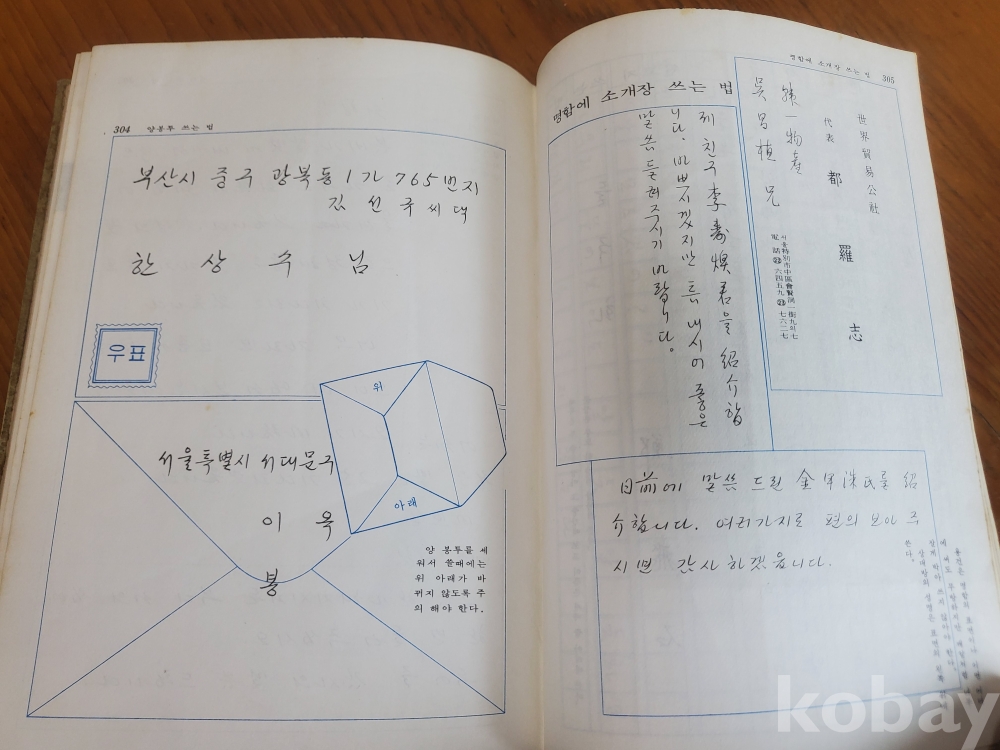 304 양봉투 쓰는 법
부산시 중구 광복동 1가 765번지
김선국씨댁
한상수님
우표
위
아래
서울특별시 서대문구
이옥
봉
양 봉투를 세
워서 쓸때에는
위 아래가 바
뀌지 않도록 주
의 해야 한다.
명함에 소개장 쓰는 법 305
명함에 소개장 쓰는 법
世界貿易公社
代表 都羅志
서울特別市中區會賢洞一街九의七
電話 ㉒ 六四五九 ㉓ 七六二七
一物産
吳昌植 兄
제 친구 李壽煥君을 紹介합
니다. 바쁘시겠지만 틈 내시어 좋은
말씀 들려주시기 바랍니다.
日前에 말씀 드린 金甲洙氏를 紹
介합니다. 여러가지로 편의 보아 주
시면 감사 하겠읍니다.
쓴다.
kobay